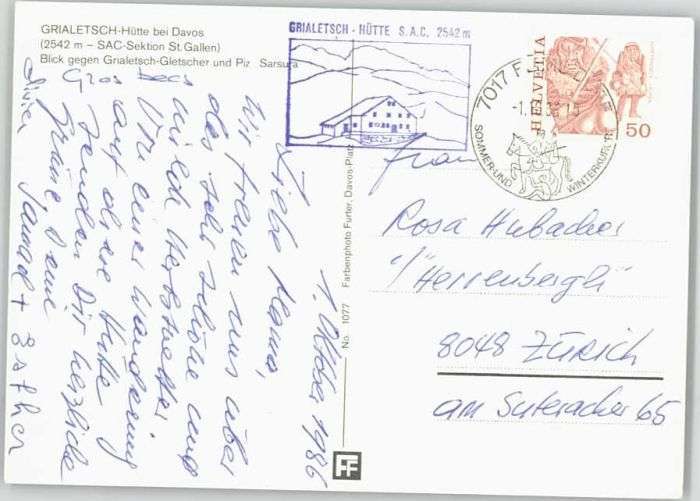 GRIALETSCH-Hütte bei Davos
(2542 m – SAC-Sektion St. Gallen)
Blick gegen Grialetsch-Gletscher und Piz Sarsura
GRIALETSCH - HÜTTE S.A.C. 2542 m
HELVETIA
50
7017 F
-1.
SOMMER-UND
WINTERKURORT
1. Oktober 1986
Liebe Mama,
Wir freuen uns über
das sehr schöne und
milde Herbstwetter.
Von einer Wanderung
auf diese Hütte
senden Dir herzliche
Grüsse Deine
Gros becs
No. 1077 Farbenphoto Furter, Davos-Platz
Frau
Rosa Hubacher
"Herrenbergli"
8048 ZÜRICH
am Suteracher 65